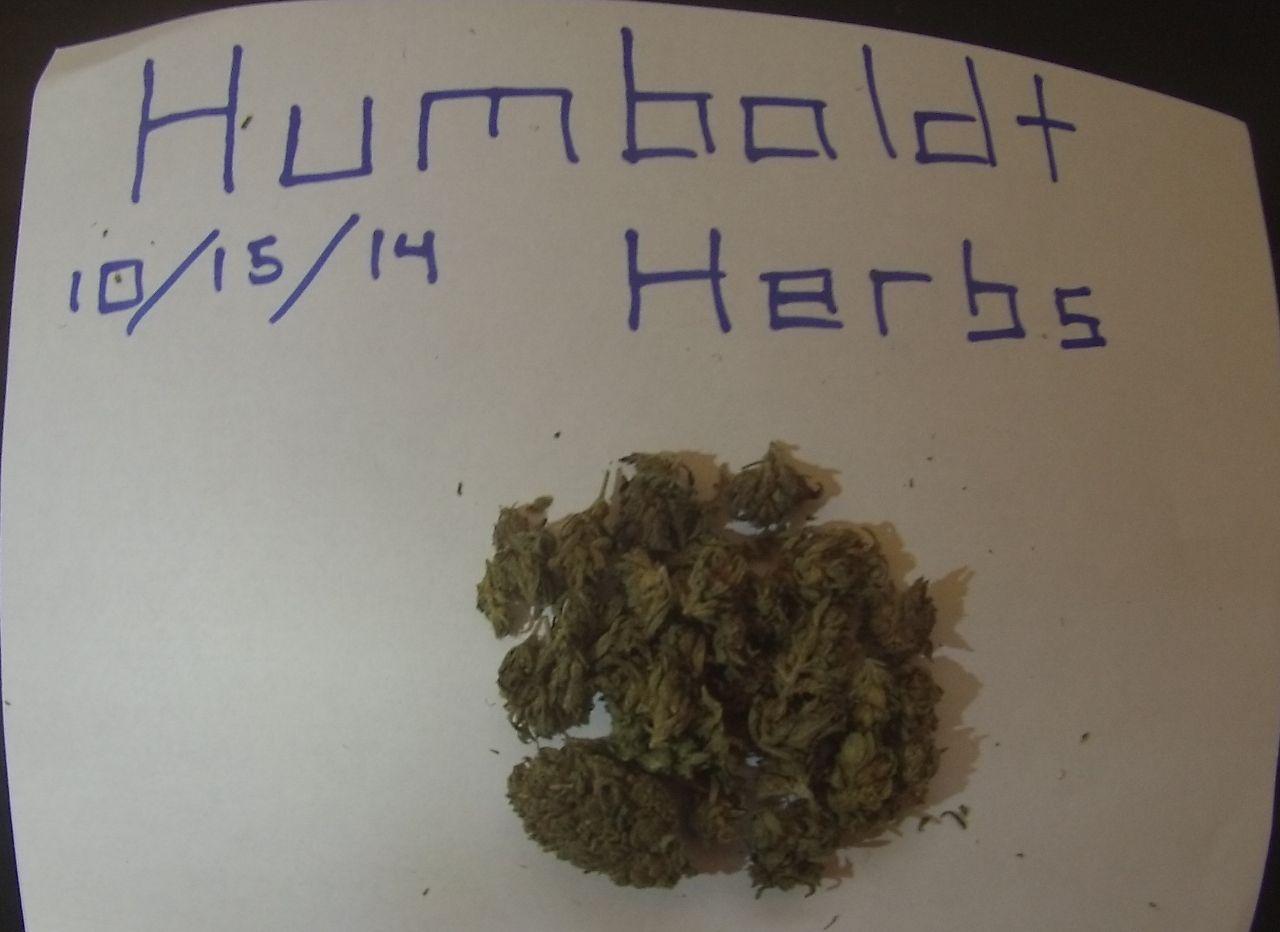 Humboldt
10/15/14 Herbs